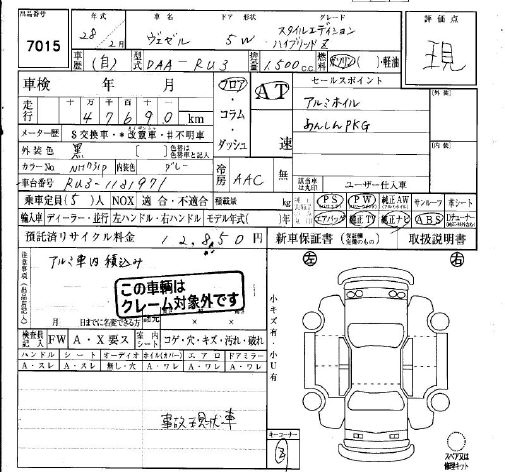 出品番号 年式 車名 ドア 形状 グレード 評価点
7015 28年2月 ヴェゼル 5W スタイルエディション ハイブリッドZ 現
車歴 (自) 型式 DAA-RU3 排気量 1,500cc 燃料 ガソリン ( )・軽油
車検 年 月 フロア・コラム・ダッシュ AT 速 セールスポイント
走行 十万 万 千 百 十 一
47690 km アルミホイル
メーター歴 $交換車・*改竄車・#不明車 あんしんPKG
外装色 黒 色替は色替車と記入
カラーNo NH731P 内装色 グレー 冷房 AAC 無 該当車は丸印 ユーザー仕入車
車台番号 RU3-1181971
乗車定員(5)人 NOX 適合・不適合 積載量 kg PS PW 純正AW サンルーフ 革シート
輸入車 ディーラー・並行 左ハンドル・右ハンドル モデル年式( )年 エアバッグ 純正TV 純正ナビ ABS
預託済リサイクル料金 12,850円 新車保証書 取扱説明書
注意事項 アルミ車内積込み
この車輌は
クレーム対象外です
月 日までに名変できる方
左 右
小キズ有 小U有
検査員記入 FW A・X要ス 室内シート コゲ・穴・キズ・汚れ・破れ
ハンドル シート オーディオ ホイル(カバー) エアロ ドアミラー
A・スレ A・スレ 無し・穴 A・ワレ A・ワレ A・ワレ
事故現状車
キーコーナー
3
スペアタイヤ
修理キット
[外装]
[内装]